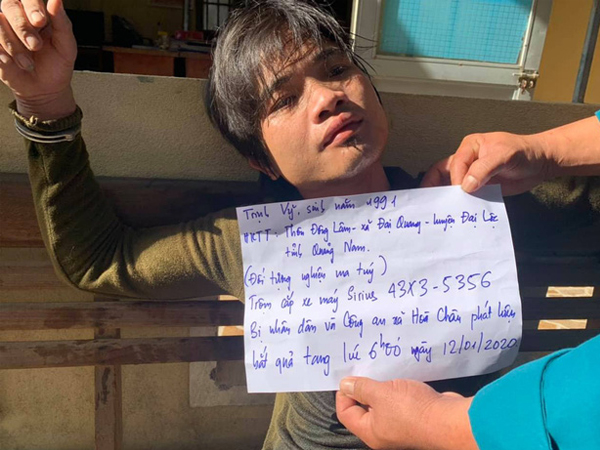 Trịnh Vỹ, sinh năm 1991
HKTT: Thôn Đông Lâm - xã Đại Quang - huyện Đại Lộc
tỉnh Quảng Nam.
(Đối tượng nghiện ma túy)
Trộm cắp xe máy Sirius 43X3-5356
Bị nhân dân và Công an xã Hoà Châu phát hiện
bắt quả tang lúc ngày 12/01/2020